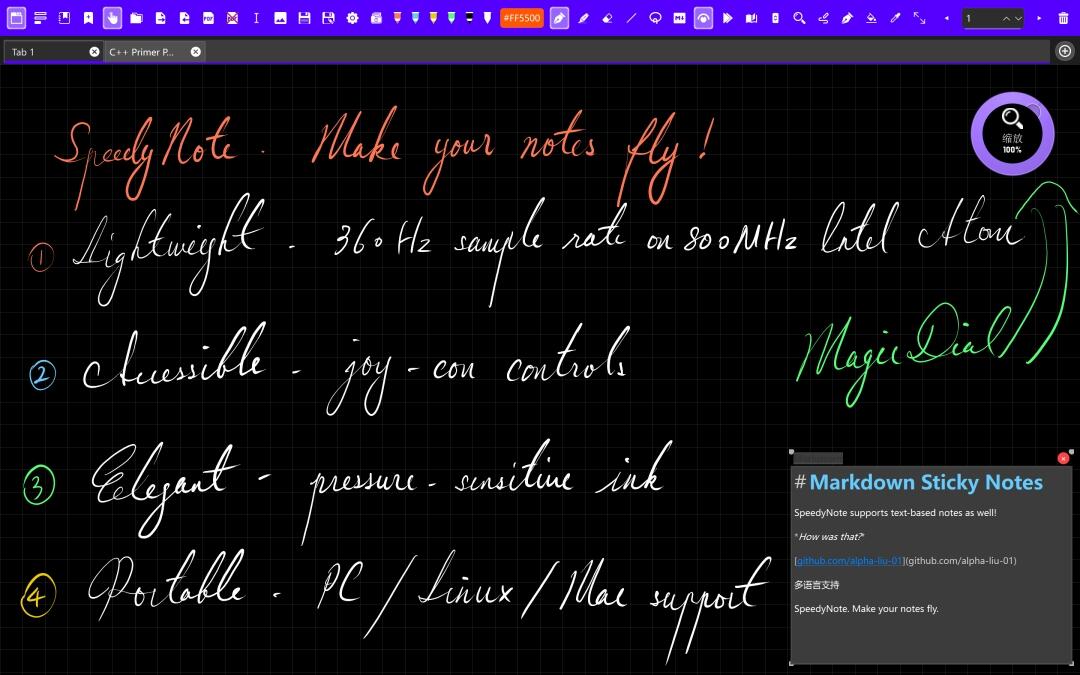 #FF5500
1
Tab 1
C++ Primer P...
SpeedyNote. Make your notes fly!
缩放
100%
① Lightweight - 360Hz sample rate on 800MHz Intel Atom
MagicDial
② Accessible - joy-con controls
③ Elegant - pressure-sensitive ink
④ Portable - PC / Linux / Mac support
# Markdown Sticky Notes
SpeedyNote supports text-based notes as well!
*How was that?*
[github.com/alpha-liu-01](github.com/alpha-liu-01)
多语言支持
SpeedyNote. Make your notes fly.